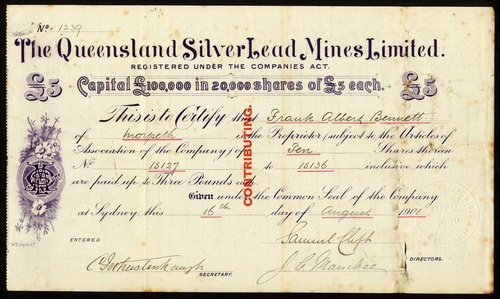 No. 1239
The Queensland Silver Lead Mines Limited.
REGISTERED UNDER THE COMPANIES ACT.
£5 Capital £100,000 in 20,000 shares of £5 each. £5
This is to Certify that Frank Albert Bennett
of Morpeth is the Proprietor (subject to the Articles of
Association of the Company) of Ten Shares therein
No 15127 to 15136 inclusive which
are paid up to Three Pounds each.
CONTRIBUTING.
Given under the Common Seal of the Company
at Sydney this 16th day of August 1901
ENTERED
Samuel Clift
SECRETARY.
DIRECTORS.